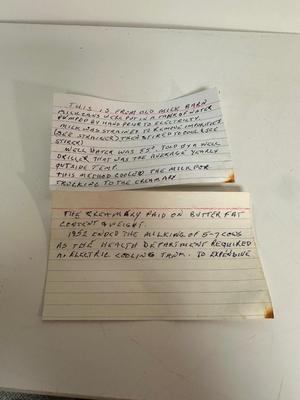 THIS IS FROM OLD MILK BARN
MILK CANS WERE PUT IN A TANK OF WATER
PUMPED BY HAND PRIOR TO ELECTRICITY.
MILK WAS STRAINED TO REMOVE IMPURITIES
(SEE STRAINER) THEN STIRED TO COOL (SEE
STIRER)
WELL WATER WAS 55°. TOLD BY A WELL
DRILLER THAT WAS THE AVERAGE YEARLY
OUTSIDE TEMP.
THIS METHOD COOLED THE MILK FOR
TRUCKING TO THE CREAMARY
THE CREAMARY PAID ON BUTTER FAT
CONTENT & WEIGHT.
1952 ENDED THE MILKING OF 5-7 COWS
AS THE HEALTH DEPARTMENT REQUIRED
AN ELECTRIC COOLING TANK. TO EXPENSIVE